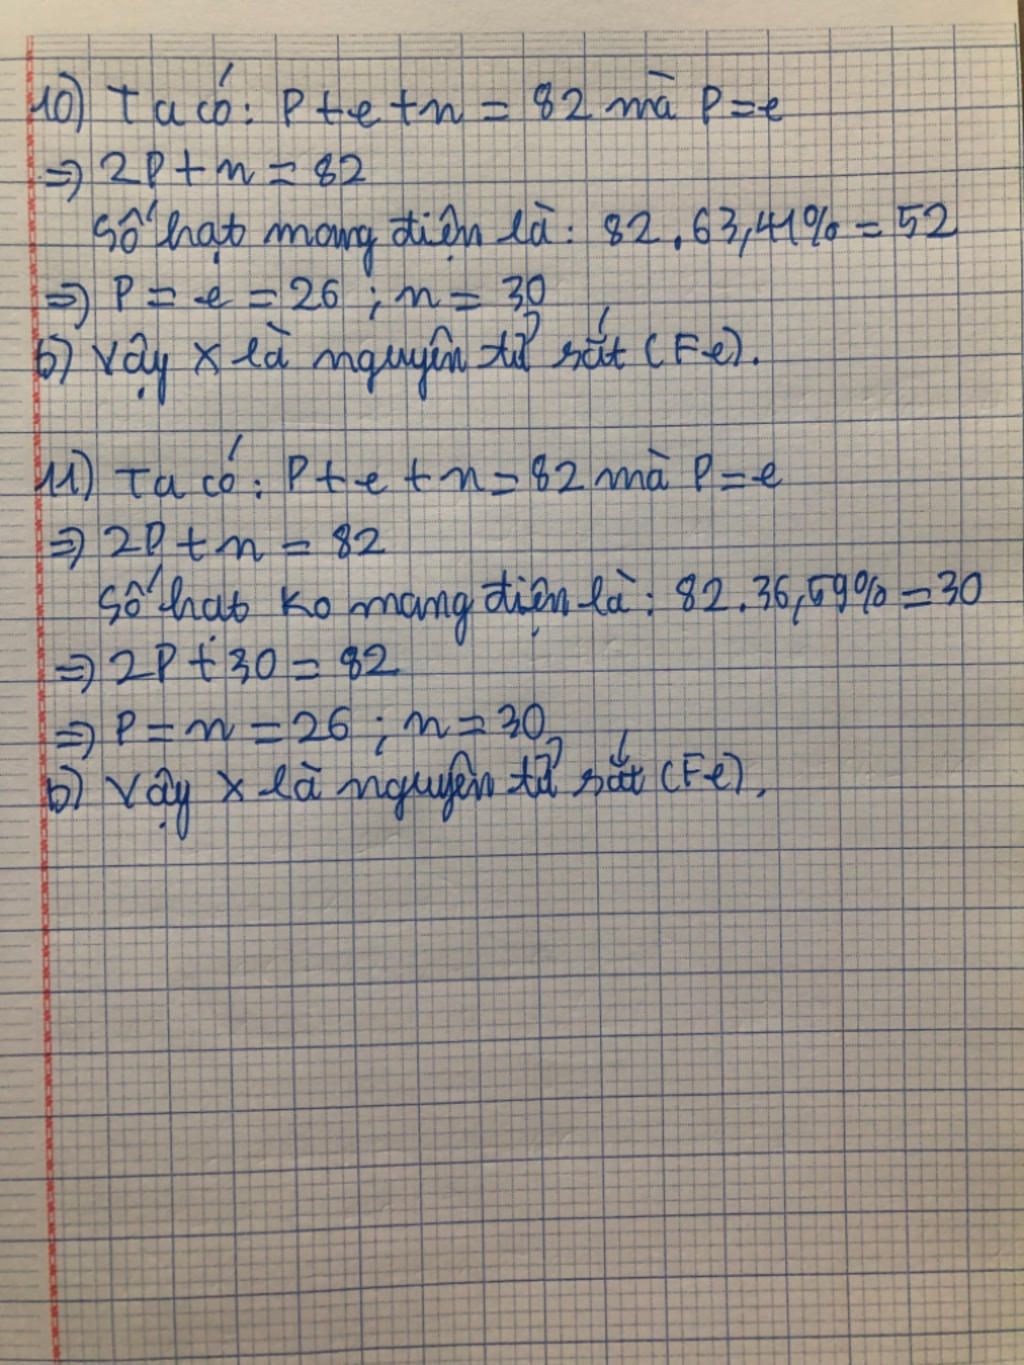 10) Ta có: P + e + n = 82 mà P = e
=> 2P + n = 82
Số hạt mang điện là: 82.63,41% = 52
=> P = e = 26 ; n = 30
b) Vậy X là nguyên tử sắt (Fe).
11) Ta có: P + e + n = 82 mà P = e
=> 2P + n = 82
Số hạt ko mang điện là: 82.36,59% = 30
=> 2P + 30 = 82
=> P = n = 26 ; n = 30
b) Vậy X là nguyên tử sắt (Fe).